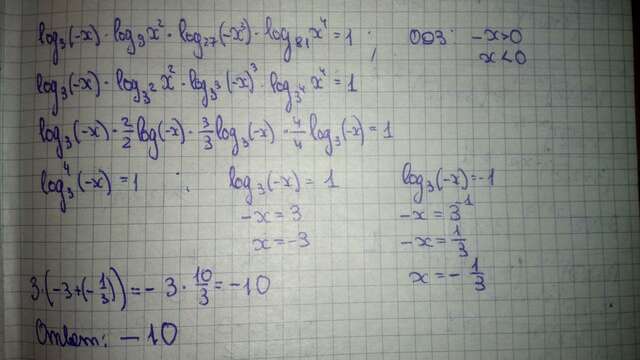 log₃(-x) · log₉x² · log₂₇(-x³) · log₈₁x⁴ = 1 ; ОДЗ: -x>0
x<0
log₃(-x) · log₃²x² · log₃³(-x)³ · log₃⁴x⁴ = 1
log₃(-x) · 2/2 log(-x) · 3/3 log₃(-x) · 4/4 log₃(-x) = 1
log₃⁴(-x) = 1 ; log₃(-x) = 1 log₃(-x) = -1
-x = 3 -x = 3⁻¹
x = -3 -x = 1/3
x = - 1/3
3·(-3+(-1/3)) = - 3 · 10/3 = -10
Ответ: - 10